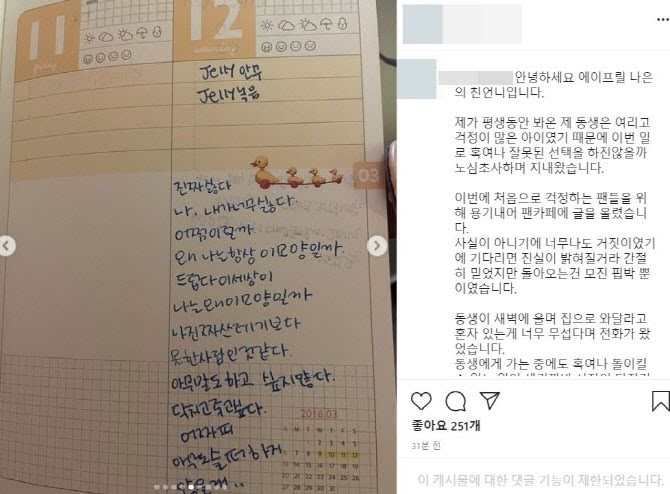 11
friday
12
saturday
Jelly 안무
Jelly 녹음
03
진짜싫다
나, 내가너무싫다
어쩜이럴까
왜 나는항상 이모양일까.
드럽다이세상이
나는왜이모양일까
나진짜쓰레기보다
못한사람인것같다.
아무말도하고 싶지않다.
닥치고죽고싶다.
어차피
아무도슬퍼하지
않을걸..
2016.03
안녕하세요 에이프릴 나은
의 친언니입니다.
제가 평생동안 봐온 제 동생은 여리고
걱정이 많은 아이였기 때문에 이번 일
로 혹여나 잘못된 선택을 하진않을까
노심초사하며 지내왔습니다.
이번에 처음으로 걱정하는 팬들을 위
해 용기내어 팬카페에 글을 올렸습니
다.
사실이 아니기에 너무나도 거짓이였기
에 기다리면 진실이 밝혀질거라 간절
히 믿었지만 돌아오는건 모진 핍박 뿐
이였습니다.
동생이 새벽에 울며 집으로 와달라고
혼자 있는게 너무 무섭다며 전화가 왔
었습니다.
동생에게 가는 중에도 혹여나 돌이킬
좋아요 251개
31분 전
이 게시물에 대한 댓글 기능이 제한되었습니다.